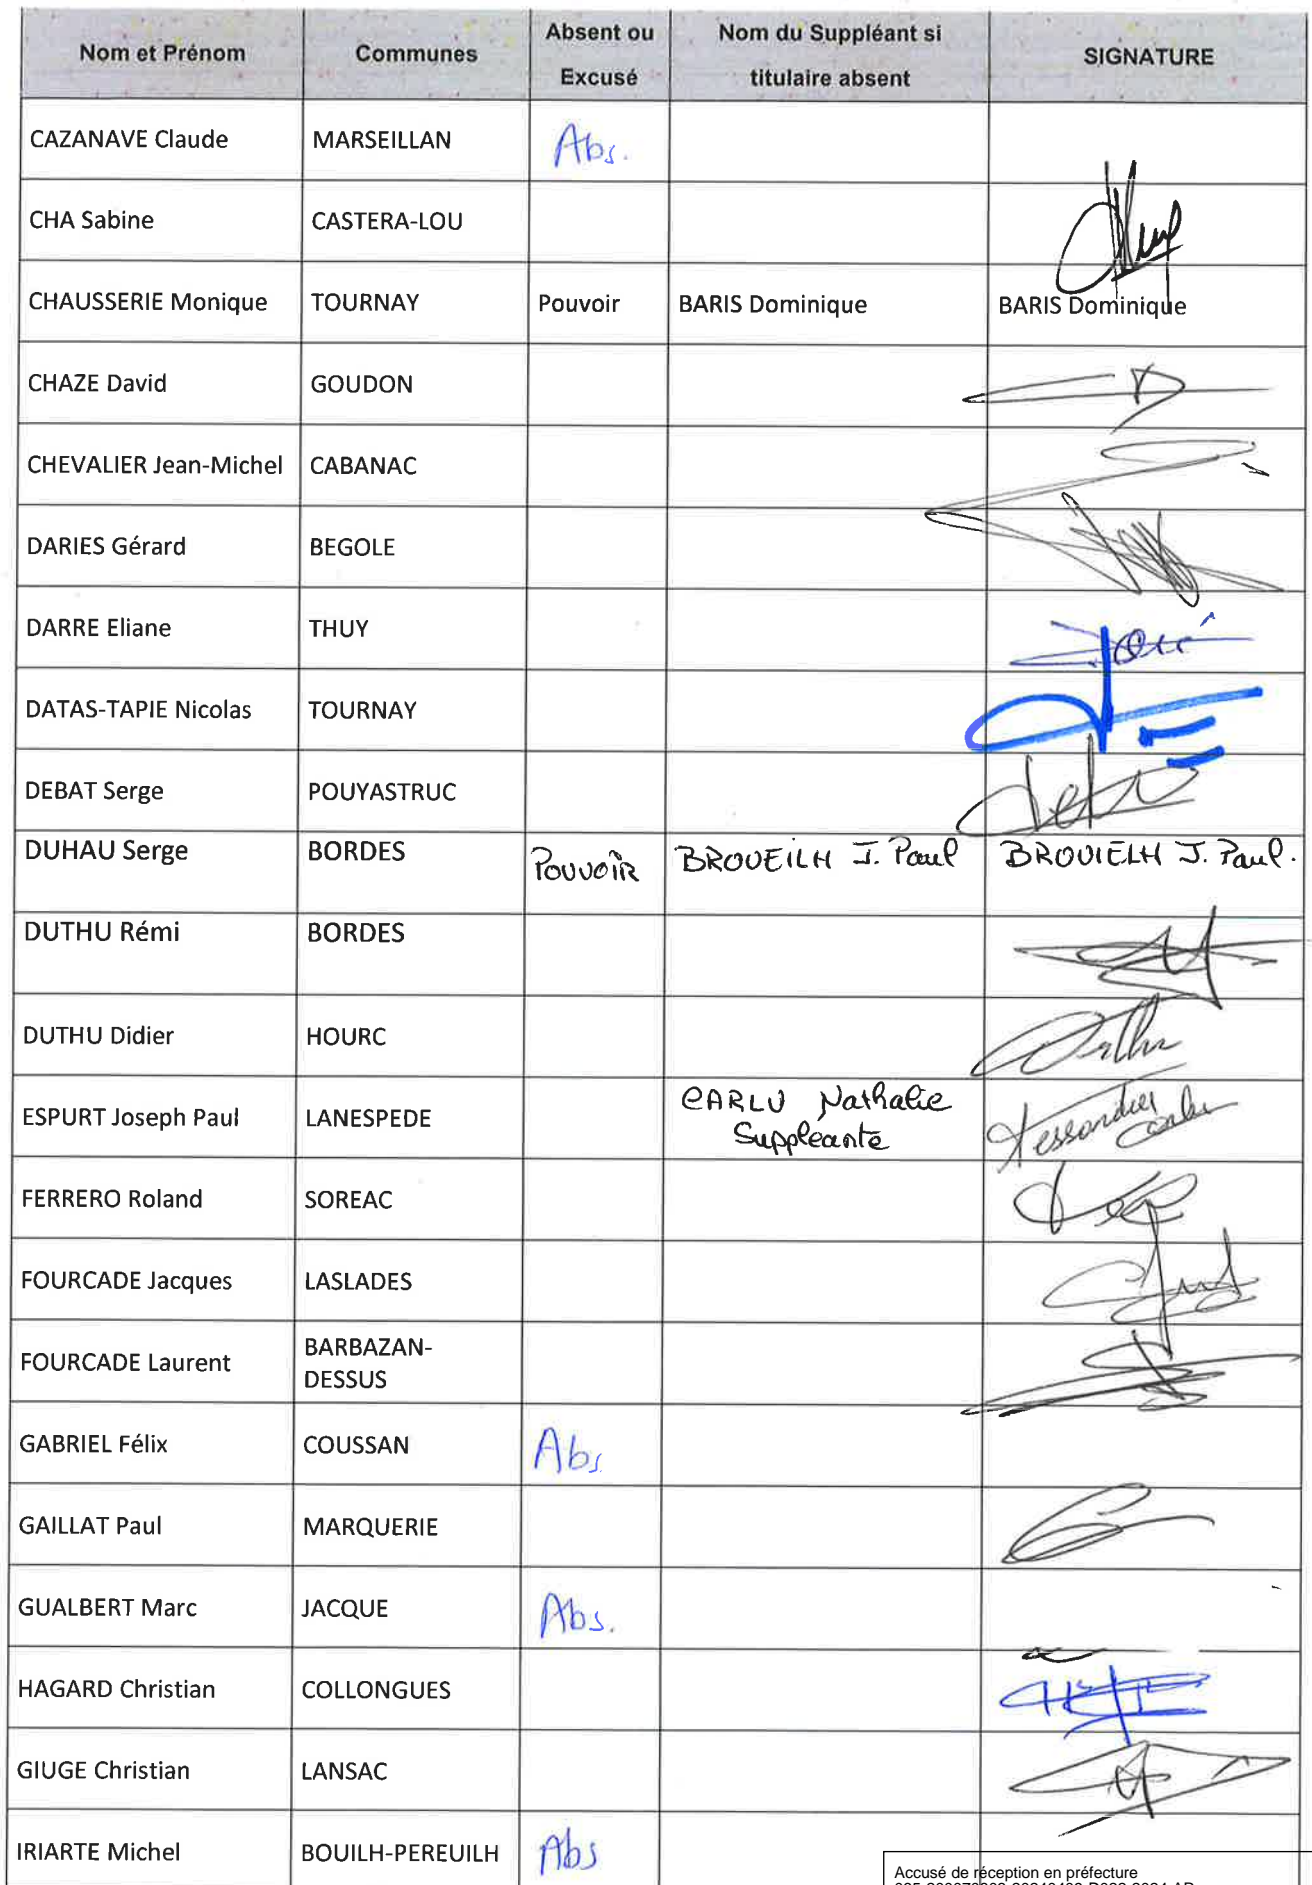 Nom et Prénom
Communes
Absent ou
Excusé
Nom du Suppléant si
titulaire absent
SIGNATURE
CAZANAVE Claude MARSEILLAN Abs.
CHA Sabine CASTERA-LOU
CHAUSSERIE Monique TOURNAY Pouvoir BARIS Dominique BARIS Dominique
CHAZE David GOUDON
CHEVALIER Jean-Michel CABANAC
DARIES Gérard BEGOLE
DARRE Eliane THUY
DATAS-TAPIE Nicolas TOURNAY
DEBAT Serge POUYASTRUC
DUHAU Serge BORDES POUVOIR BROUEILH J. Paul BROUIELH J. Paul.
DUTHU Rémi BORDES
DUTHU Didier HOURC
ESPURT Joseph Paul LANESPEDE CARLU Nathalie
Suppléante
FERRERO Roland SOREAC
FOURCADE Jacques LASLADES
FOURCADE Laurent BARBAZAN-
DESSUS
GABRIEL Félix COUSSAN Abs
GAILLAT Paul MARQUERIE
GUALBERT Marc JACQUE Abs.
HAGARD Christian COLLONGUES
GIUGE Christian LANSAC
IRIARTE Michel BOUILH-PEREUILH Abs
Accusé de réception en préfecture